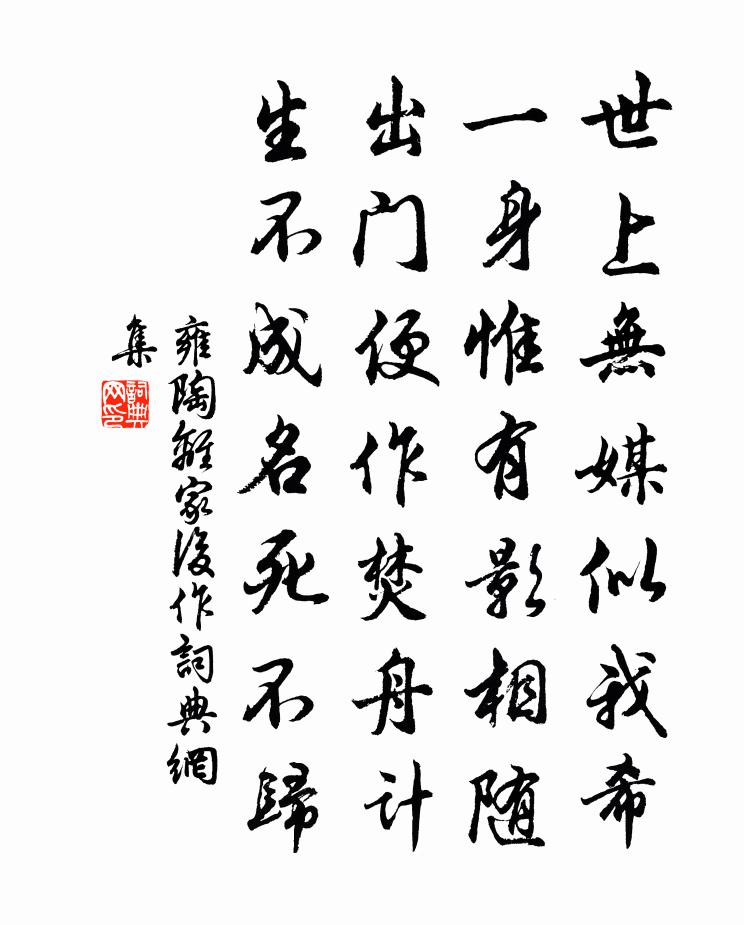 世上無媒似我希
一身惟有影相随
出门便作焚舟计
生不成名死不歸
雍陶離家後作詞典網
集
詞典
网印